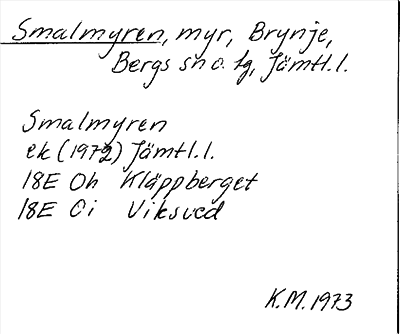 Smalmyren, myr, Brynje,
Bergs sn o. tg, Jämtl.l.
Smalmyren
ek (1972) Jämtl.l.
18E 0h Kläppberget
18E 0i Viksved
K.M. 1973